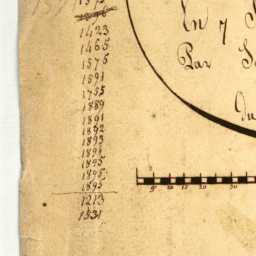 En 7
Par
Du
1423
1465
1575
1591
1755
1889
1891
1892
1893
1894
1895
1895
1895
1213
1531
5 10 15 20 30